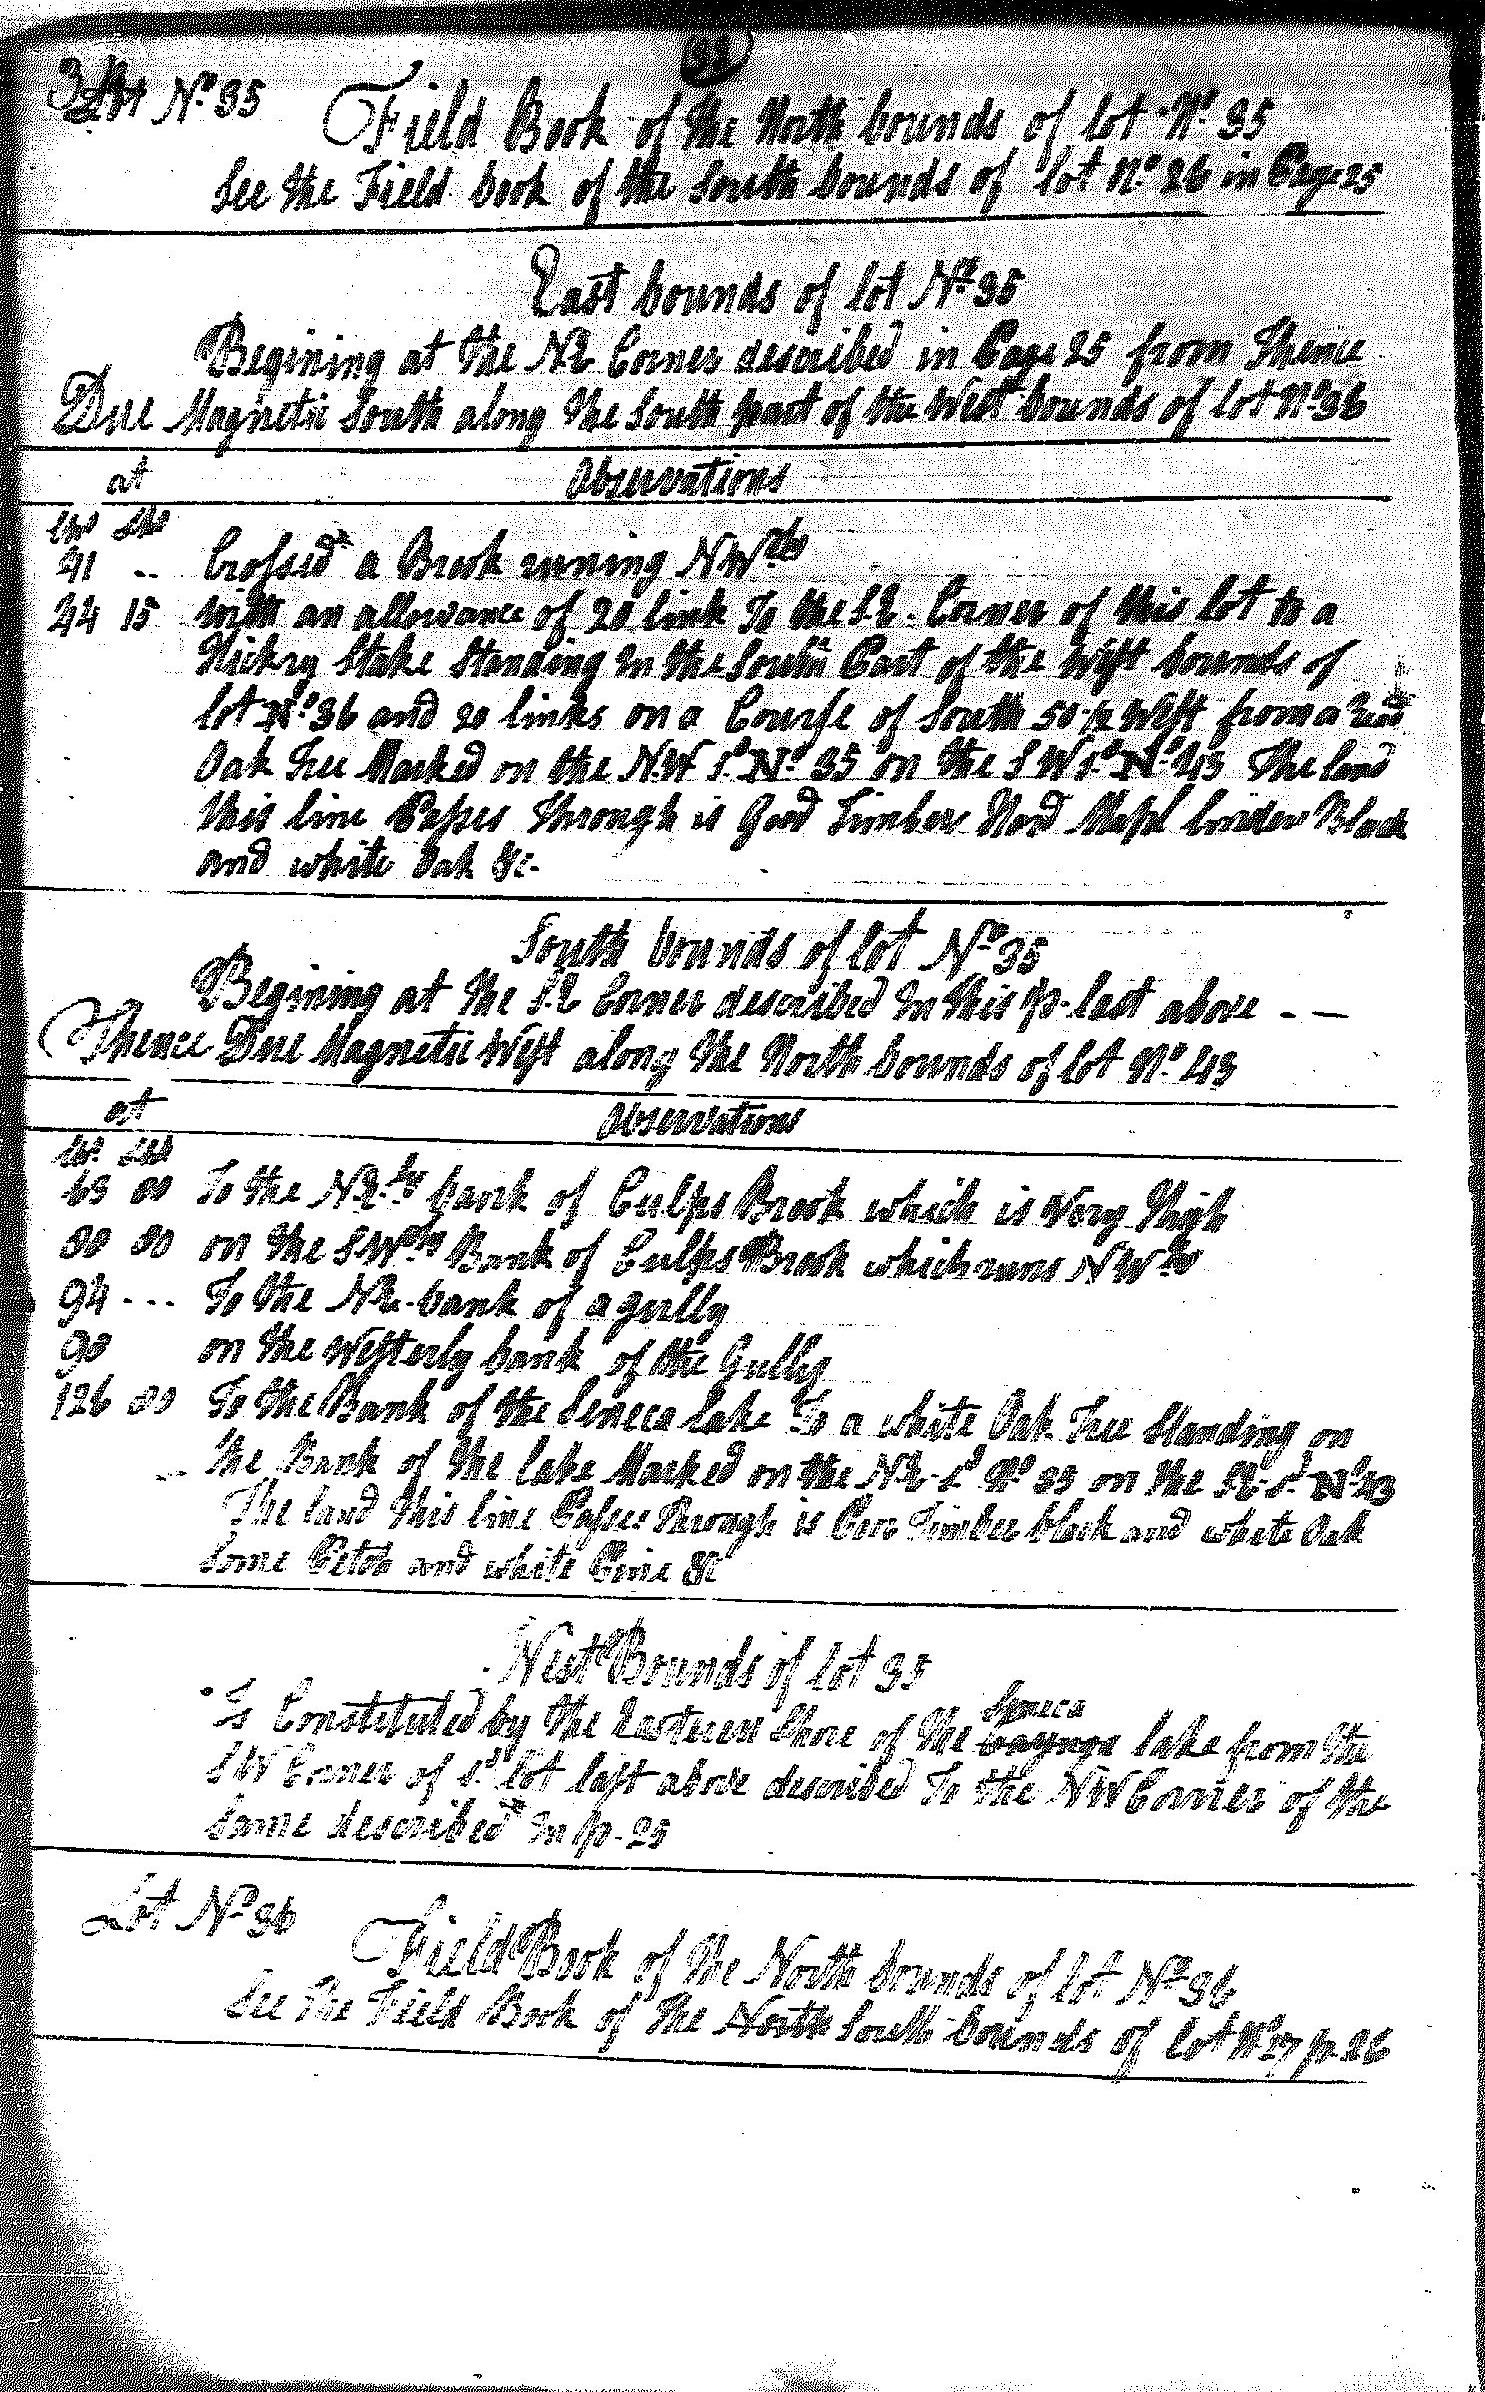 Lot Nº 35
Field Book of the North bounds of lot Nº 35
See the Field book of the South bounds of lot Nº 26 in Page 25
East bounds of lot Nº 35
Begining at the NE Corner described in Page 25 from Thence
Due Magnetic South along the South part of the West bounds of lot Nº 36
at Observations
Chs Lks
41 .. Crossed a Brook runing NWtly
44 15 with an allowance of 20 link To the S.E. Corner of this lot to a
Hickry Stake Standing in the South Part of the West bounds of
lot Nº 36 and 20 links on a Course of South 50 West from a
Oak Tree Marked on the N.W Sd Nº 35 on the S W Sd Nº 43 The land
this line Passes through is Good Timber Hard Mapl linden Black
and white Oak &c-
South bounds of lot Nº 35
Begining at the S.E Corner described In this p. last above - -
Thence Due Magnetic West along the North bounds of lot Nº 43
at Observations
Chs Lks
To the NEly bank of Culps Brook which is Very High
on the SWtly Bank of Culps Brook which runs NWtly
94 ... To the NE. bank of a gully
on the Westerly bank of the Gully
126 To the Bank of the Seneca lake To a white Oak Tree Standing on
the Bank of the lake Marked on the NE Sd Nº 35 on the SE Sd Nº 43
The land this line Passes through is Timber black and white Oak
Some Pitch and white Pine &c
West Bounds of lot 35
Is Constituted by the Eastern Shore of the Seneca lake from the
SW Corner of sd lot last above described To the NW Corner of the
Same described In p. 25
Lot Nº 36
Field Book of the North bounds of lot Nº 36
See the Field Book of the North South bounds of lot Nº 27 p. 26